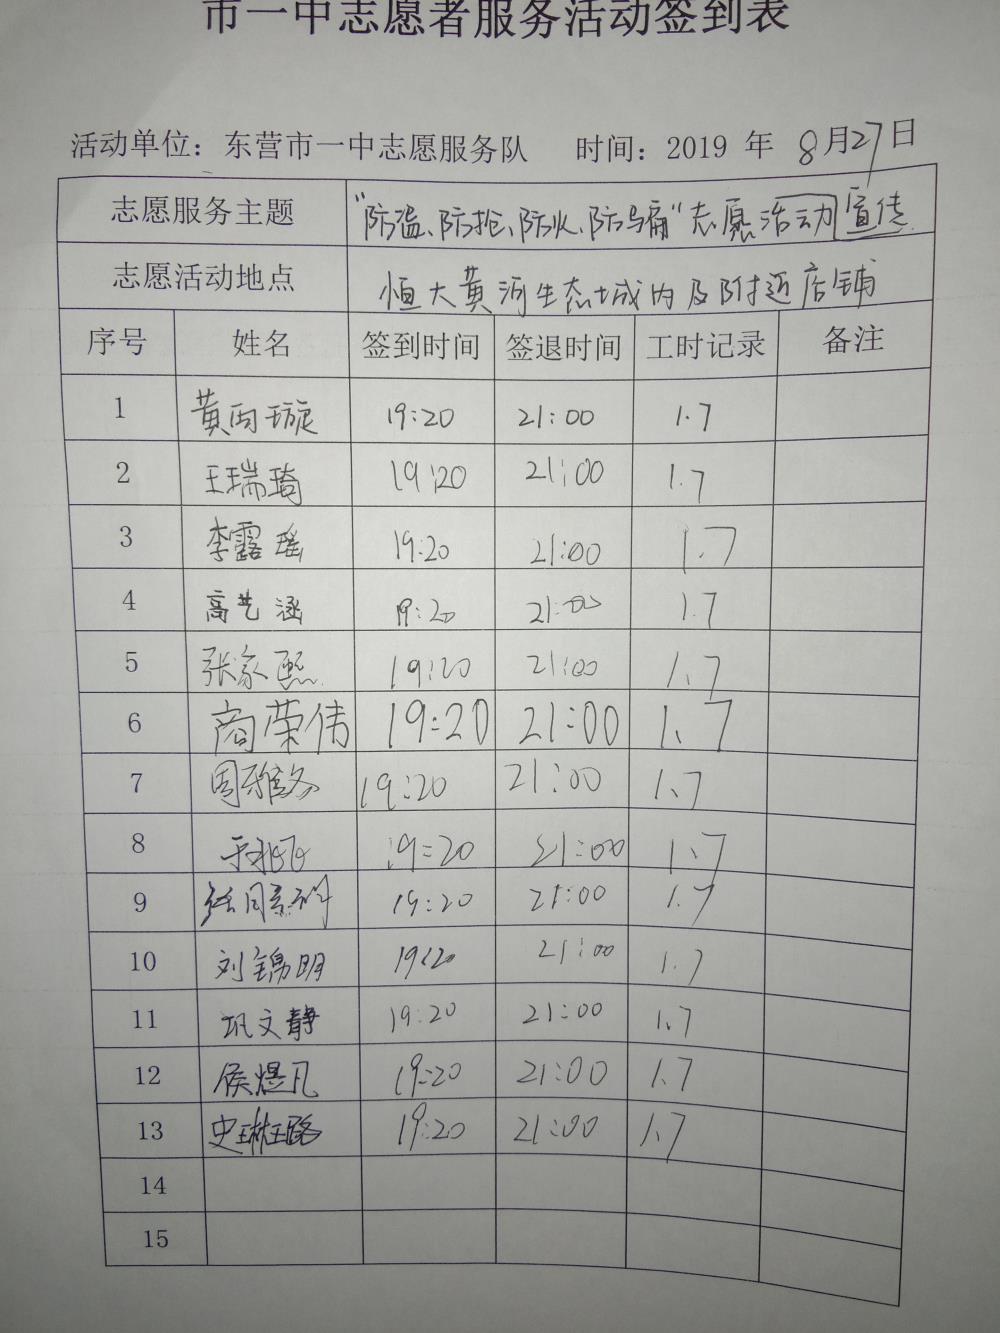 市一中志愿者服务活动签到表
活动单位：东营市一中志愿服务队 时间：2019 年 8月27日
志愿服务主题 "防盗、防抢、防火、防骗"志愿活动宣传
志愿活动地点 恒大黄河生态城内及附近店铺
序号 姓名 签到时间 签退时间 工时记录 备注
1 黄丙璇 19:20 21:00 1.7
2 王瑞琦 19:20 21:00 1.7
3 李露瑶 19:20 21:00 1.7
4 高艺涵 19:20 21:00 1.7
5 张家熙 19:20 21:00 1.7
6 商荣伟 19:20 21:00 1.7
7 周雅 19:20 21:00 1.7
8 19:20 21:00 1.7
9 19:20 21:00 1.7
10 刘锦明 19:20 21:00 1.7
11 巩文静 19:20 21:00 1.7
12 侯煜凡 19:20 21:00 1.7
13 史琳璐 19:20 21:00 1.7
14
15